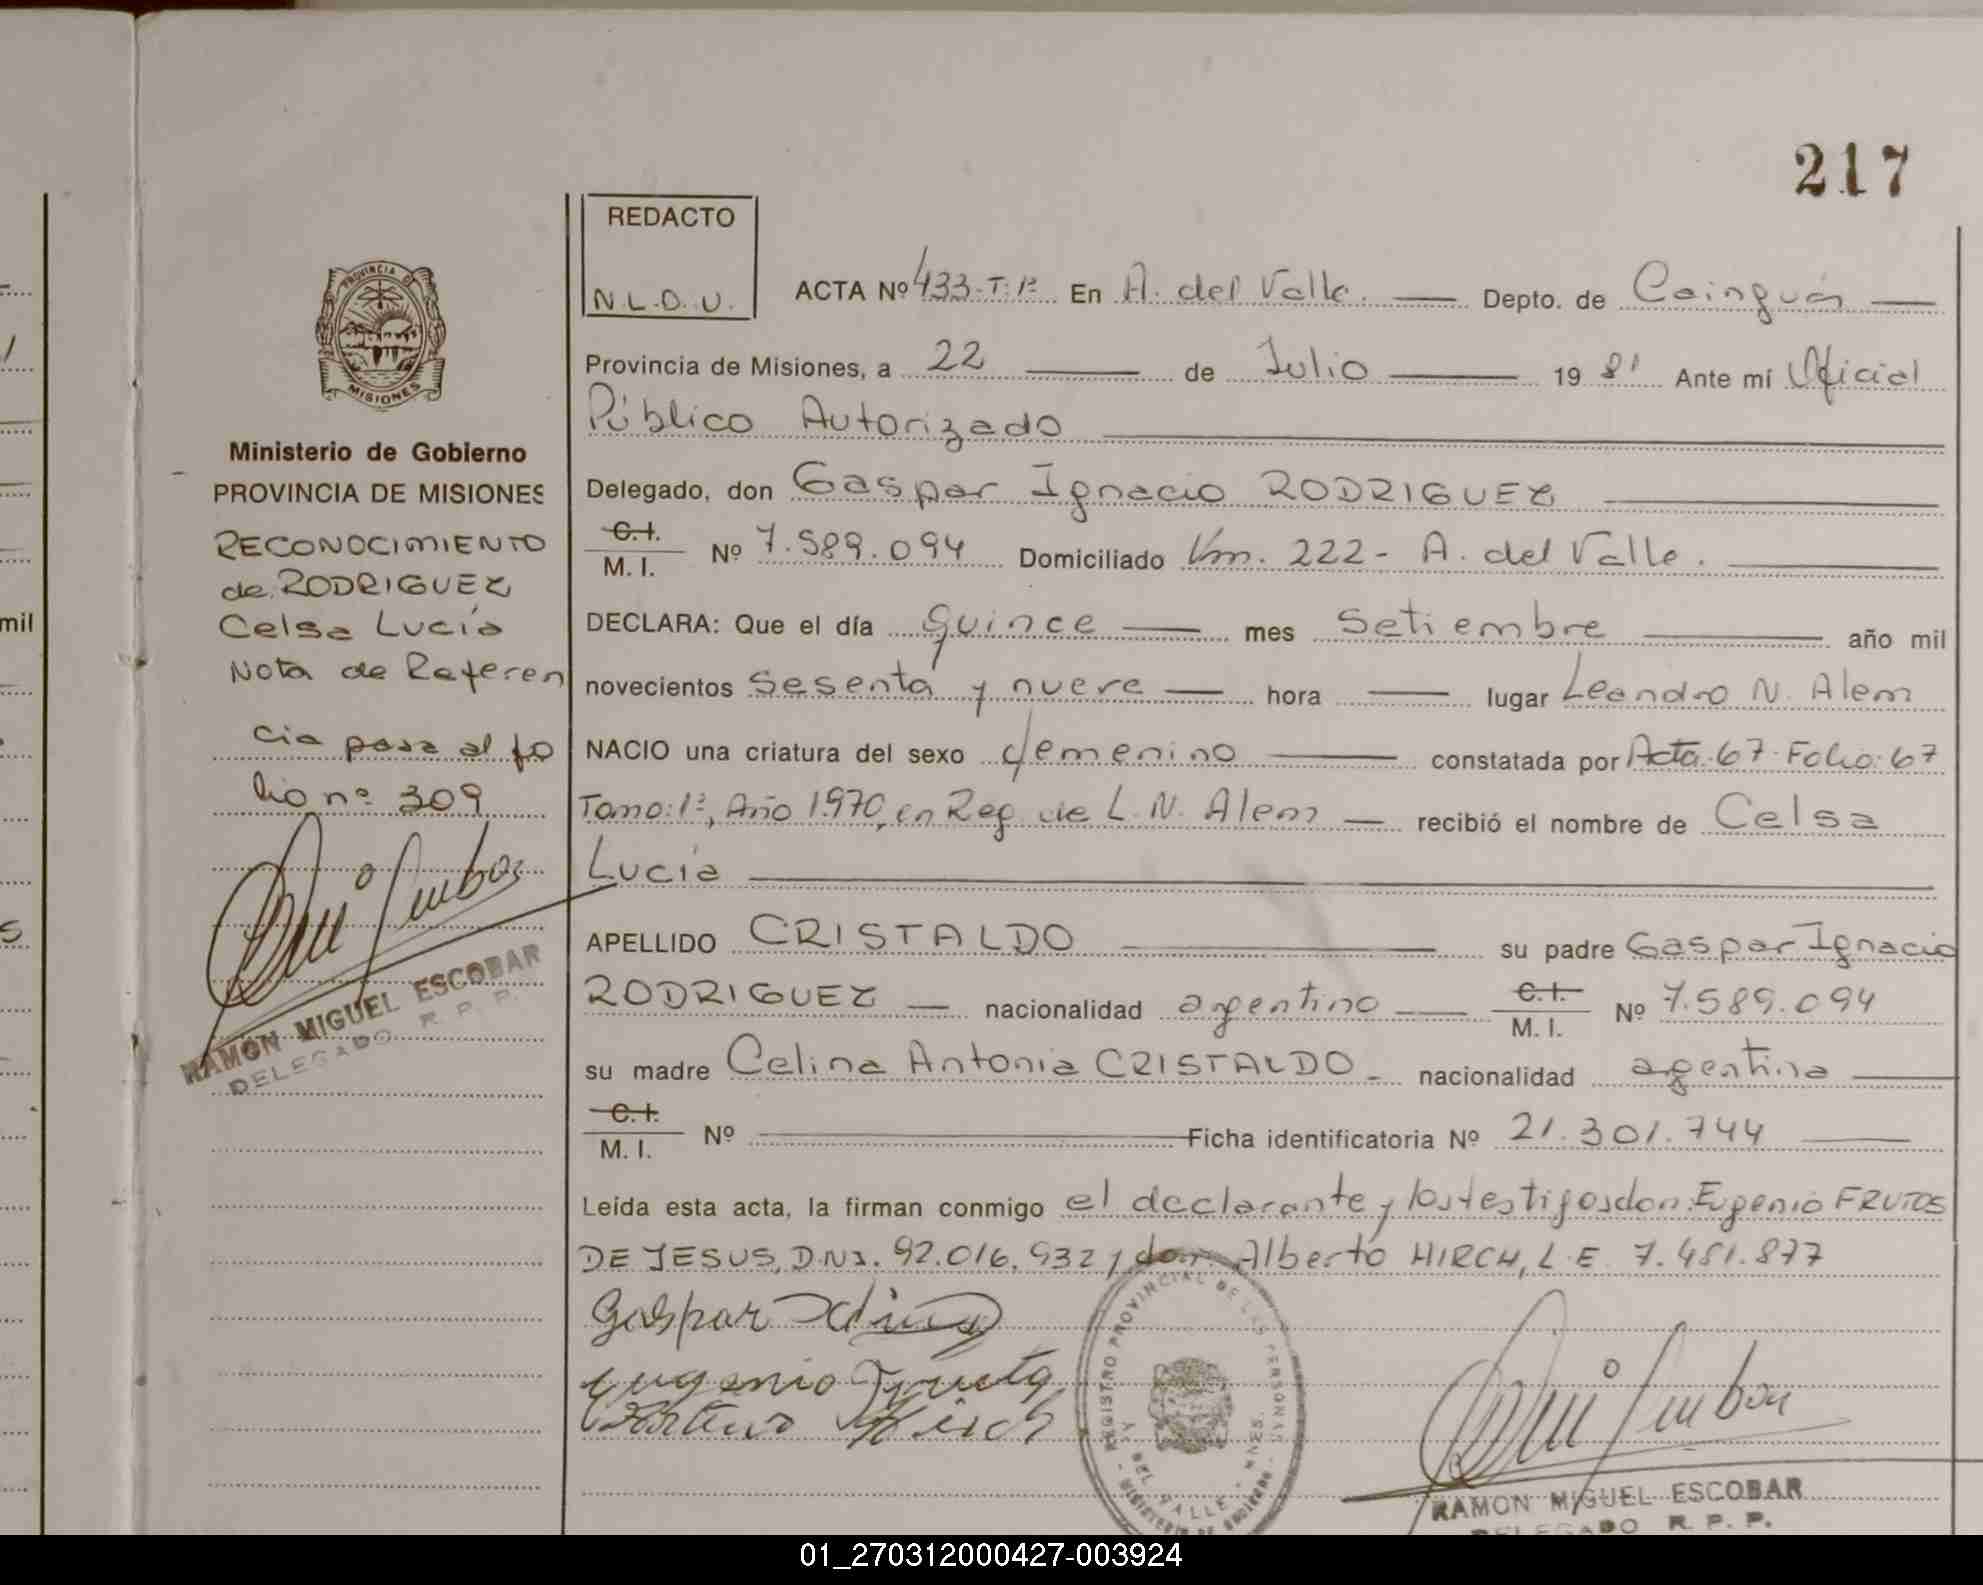 217
REDACTO
N.L.D.U.
ACTA Nº 433-T:1º En A. del Valle. Depto. de Cainguás
Provincia de Misiones, a 22 de Julio 19 81 Ante mí Oficial
Público Autorizado
Delegado, don Gaspar Ignacio RODRIGUEZ
C.I.
M. I. Nº 7.589.094 Domiciliado Km. 222- A. del Valle.
DECLARA: Que el día quince mes Setiembre año mil
novecientos sesenta y nueve hora lugar Leandro N. Alem
NACIO una criatura del sexo femenino constatada por Acta:67-Folio:67
Tomo:1º, Año 1.970, en Reg. de L. N. Alem recibió el nombre de Celsa
Lucía
APELLIDO CRISTALDO su padre Gaspar Ignacio
RODRIGUEZ nacionalidad argentino C.I.
M. I. Nº 7.589.094
su madre Celina Antonia CRISTALDO nacionalidad argentina
C.I.
M. I. Nº Ficha identificatoria Nº 21.301.744
Leída esta acta, la firman conmigo el declarante y los testigos don: Eugenio FRUTOS
DE JESUS, D.N.I. 92.016.932 y don Alberto HIRCH, L.E. 7.451.877
Gaspar
eugenio
RAMON MIGUEL ESCOBAR
DELEGADO R. P. P.
REGISTRO PROVINCIAL DE LAS PERSONAS
A. DEL VALLE - MNES.
MINISTERIO DE GOBIERNO
PROVINCIA DE
MISIONES
Ministerio de Gobierno
PROVINCIA DE MISIONES
RECONOCIMIENTO
de RODRIGUEZ
Celsa Lucía
Nota de Referen
cia pasa al fo
lio nº 309
RAMON MIGUEL ESCOBAR
DELEGADO R. P. P.
mil
01_270312000427-003924